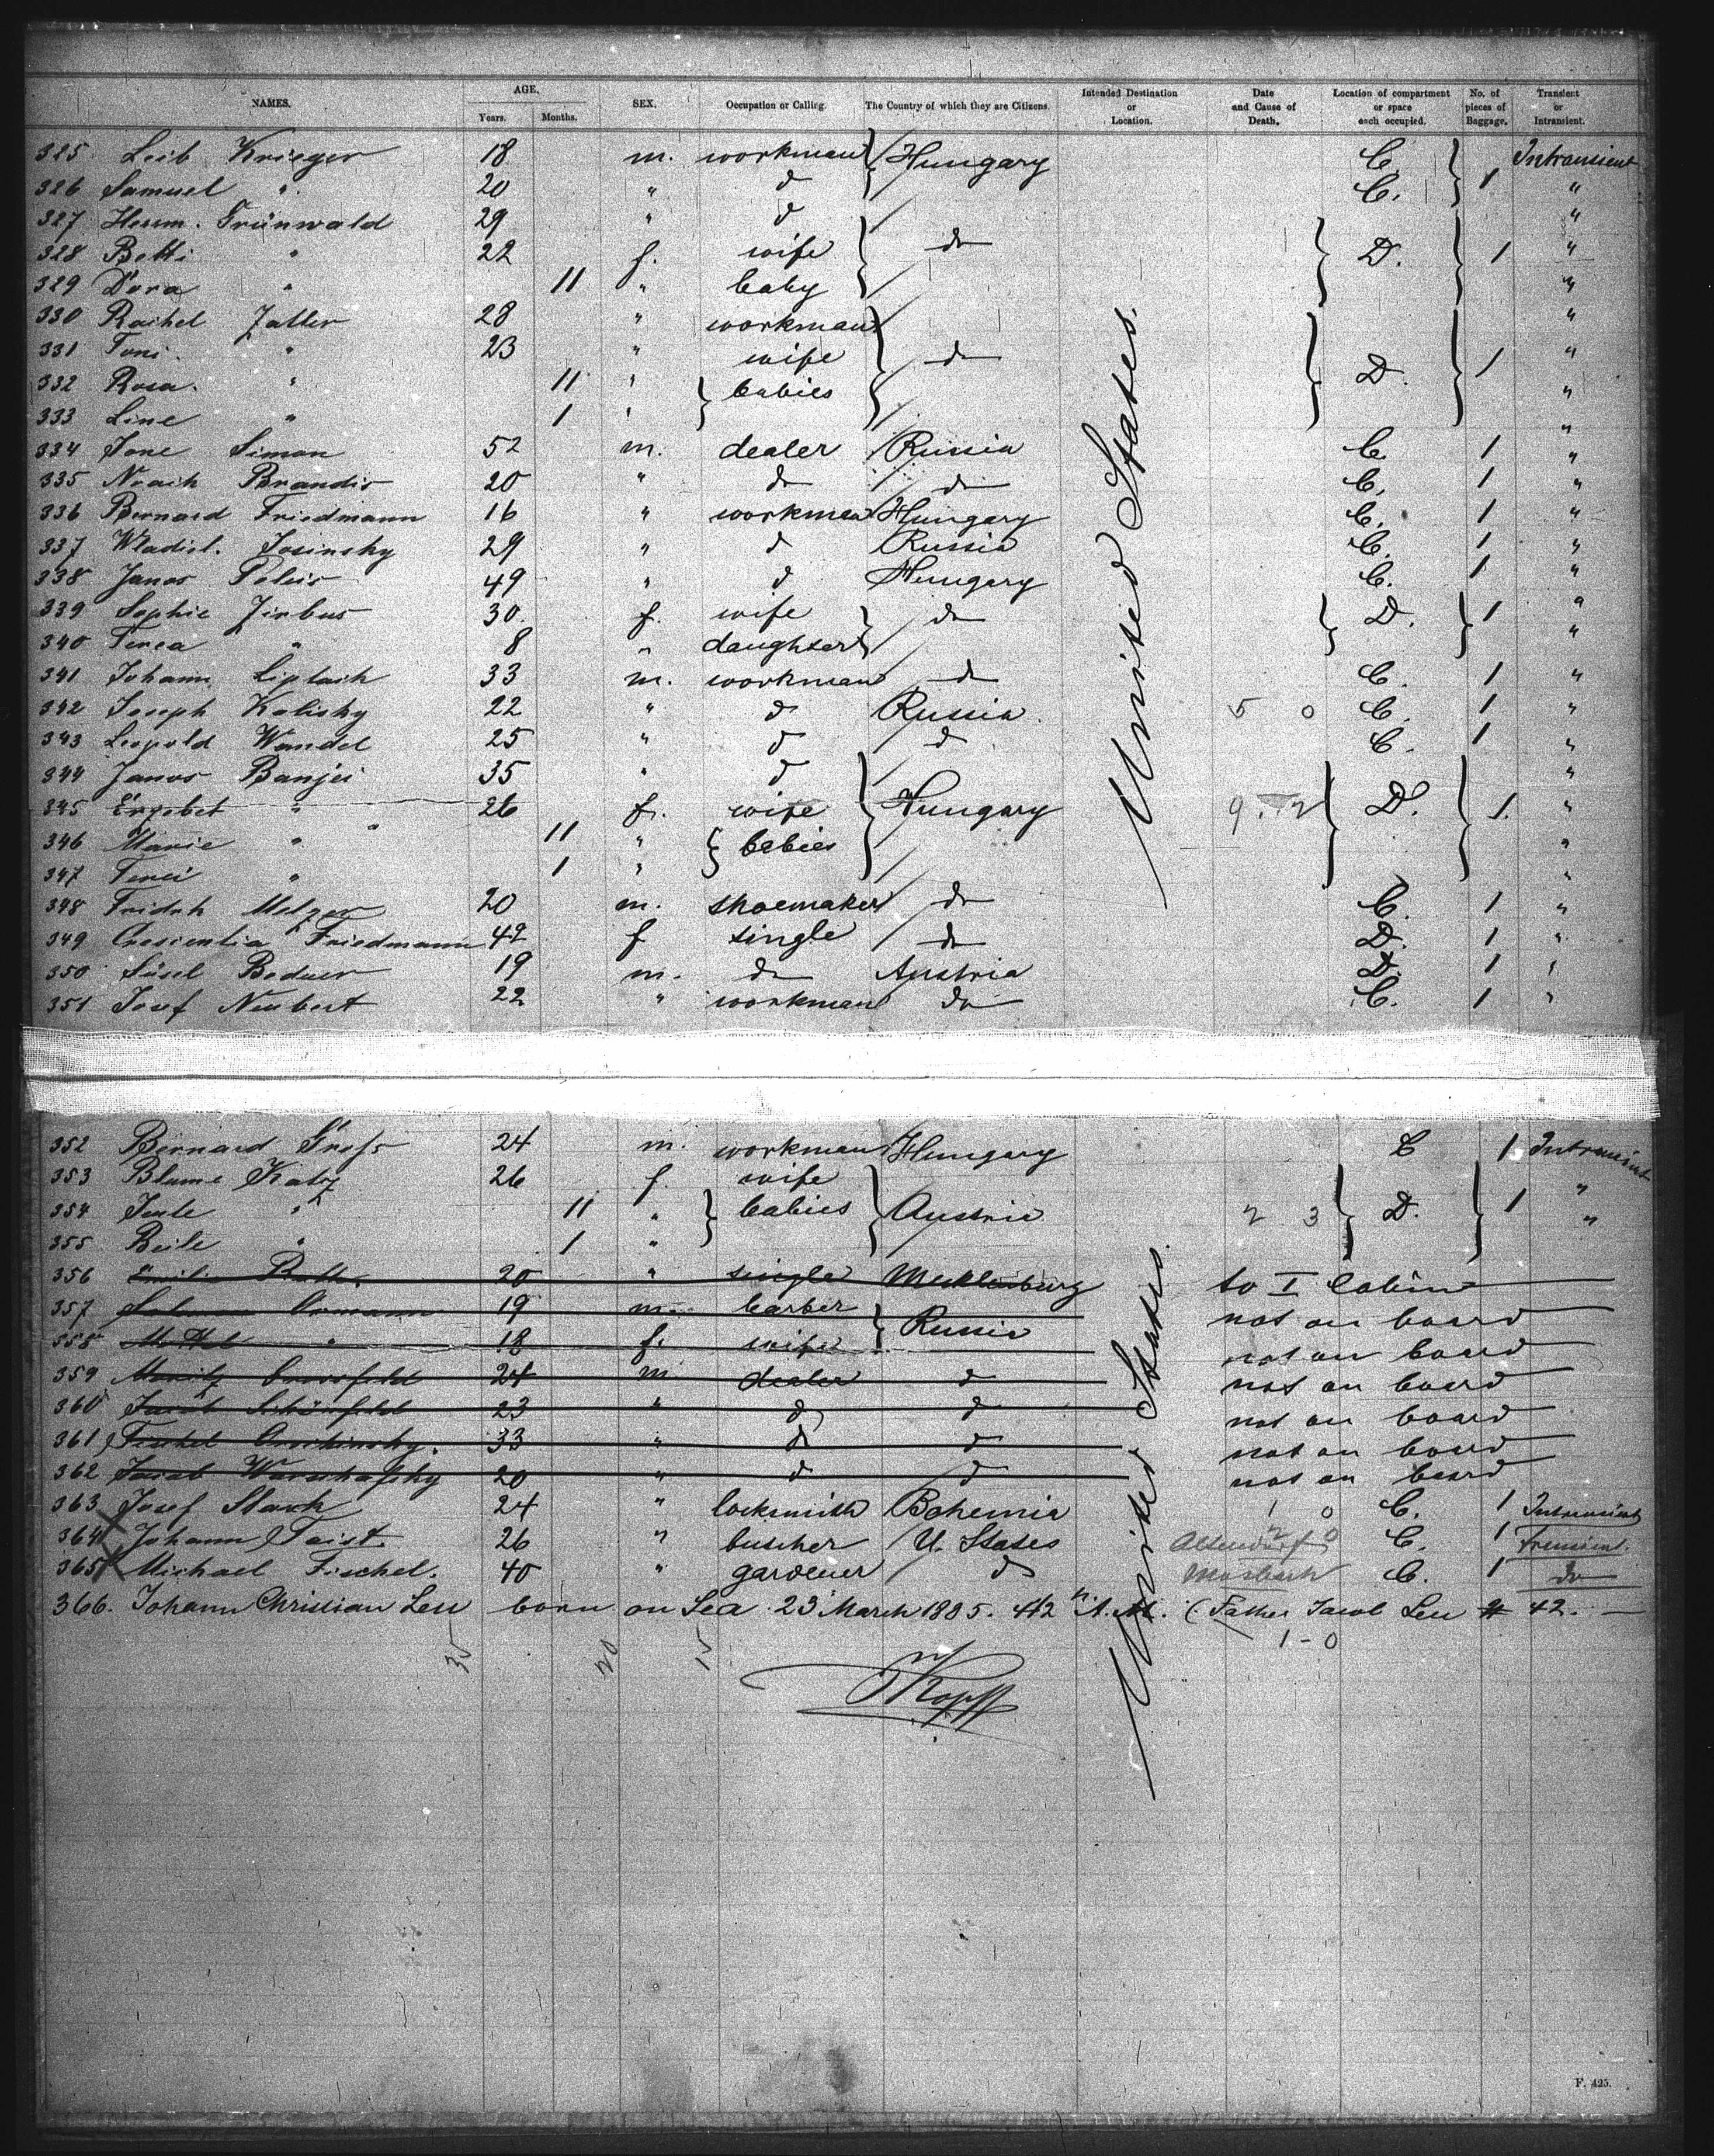 NAMES. AGE. Years. Months. SEX. Occupation or Calling. The Country of which they are Citizens. Intended Destination or Location. Date and Cause of Death. Location of compartment or space each occupied. No. of pieces of Baggage. Transient or Intransient.
325 Leib Krieger 18 m. workman Hungary C. Intransient
326 Samuel " 20 " d C. 1 "
327 Herm. Grünwald 29 " d "
328 Betti " 22 f. wife do D. 1 "
329 Dora " 11 " baby "
330 Rachel Zaller 28 " workman "
331 Toni " 23 " wife do D. 1 "
332 Rosa. " 11 " babies "
333 Line " 1 " "
334 Simon 52 m. dealer Russia C. 1 "
335 Brandis 20 " do do C. 1 "
336 Bernard Friedmann 16 " workman Hungary C. 1 "
337 Wladisl. Josinsky 29 " d Russia C. 1 "
338 Janos 49 " d Hungary C. 1 "
339 Sophie Zirbus 30. f. wife do D. 1 "
340 Terea " 8 " daughter "
341 Johann Liptach 33 m. workman do C. 1 "
342 Joseph Kolisky 22 " d Russia. 5 0 C. 1 "
343 Leopold Wandel 25 " d d C. 1 "
344 Janos Banjei 35 " d "
345 Erzebet " 26 f. wife Hungary 9. D. 1. "
346 Marie " 11 " babies "
347 Terei " 1 " "
348 Fridrh Melzer 20 m. shoemaker do C. 1 "
349 Crescentia Friedmann 42 f single do D. 1 "
350 Süsel Beduer 19 m. do Austria D. 1 "
351 Josef Neubert 22 " workman do C. 1 "
United States.
352 Bernard Gross 24 m. workman Hungary C 1 Intransient
353 Blume Katz 26 f. wife "
354 Jule " 11 " babies Austria 2 3 D. 1 "
355 Beile " 1 "
356 Emilie Rath. 20 " single Mecklenburg to I Cabin
357 19 m. barber Russia not on board
358 " 18 f. wife not on board
359 Moritz 24 m dealer d not on board
360 Jacob Schönfeld 23 " d d not on board
361 33 " d d not on board
362 Jacob Warschafsky 20 " d d not on board
363 Josef Stark 24 " locksmith Bohemia 1 0 C. 1 Intransient
364 Johann Faist. 26 " butcher U. States Altendorf 2 0 C. 1 Transient.
365 Michael Fischel. 40 " gardener d Mosbach C. 1 do
366. Johann Christian Leu born on Sea 23 March 1885. 4 1/2 A.M. (Father Jacob Leu # 42.
1-0
35 20 15
United States.
Kopff
F. 425.